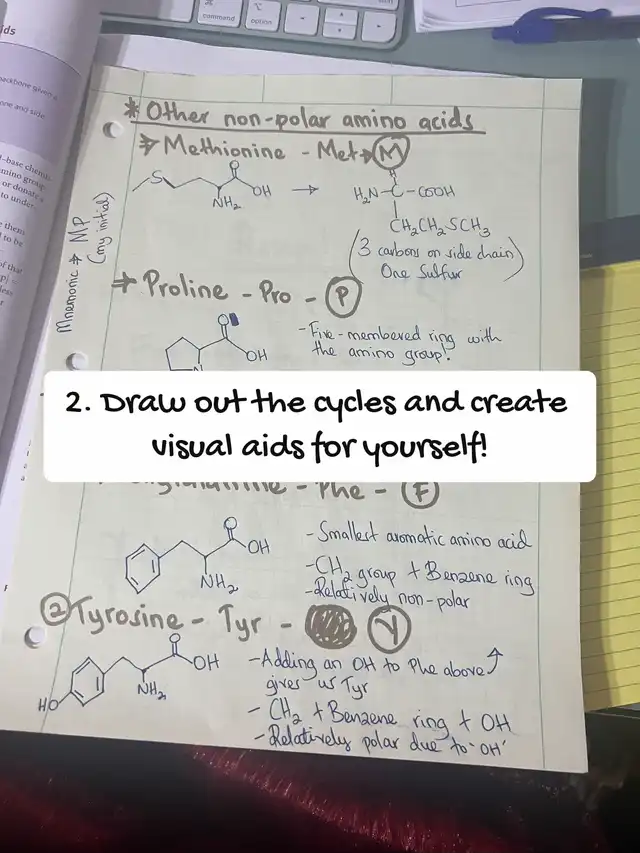 command
option
ids
backbone given
one and side
-base chemis
mino group
or donate a
to under
* Other non-polar amino acids
→ Methionine - Met → M
S
O
OH
NH₂
→
H
H₂N-C-COOH
CH₂CH₂SCH₃
(3 carbons on side chain
One Sulfur)
Mnemonic → MP
(my initial)
→ Proline - Pro - P
O
OH
- Five-membered ring with
the amino group!
2. Draw out the cycles and create
visual aids for yourself!
- Phe - F
O
OH
NH₂
- Smallest aromatic amino acid
- CH₂ group + Benzene ring
- Relatively non-polar
② Tyrosine - Tyr - Y
O
OH
NH₂
HO
- Adding an OH to Phe above ↑
gives us Tyr
- CH₂ + Benzene ring + OH
- Relatively polar due to 'OH'